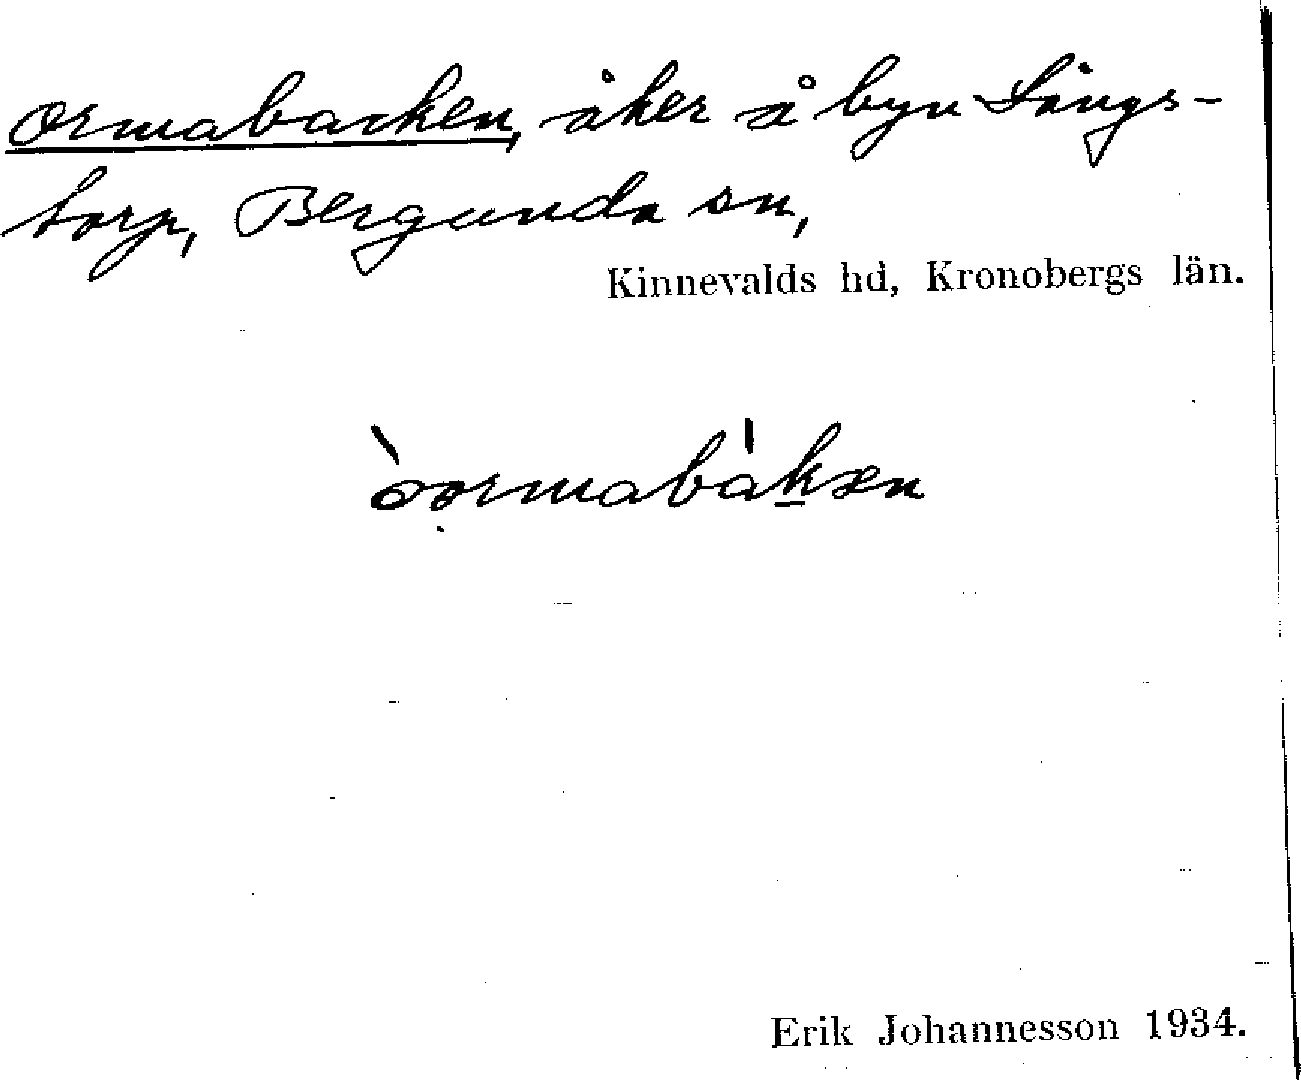 Ormabacken, åker å byn Långs-
torp, Bergunda sn,
Kinnevalds hd, Kronobergs län.
òormabàkæn
Erik Johannesson 1934.